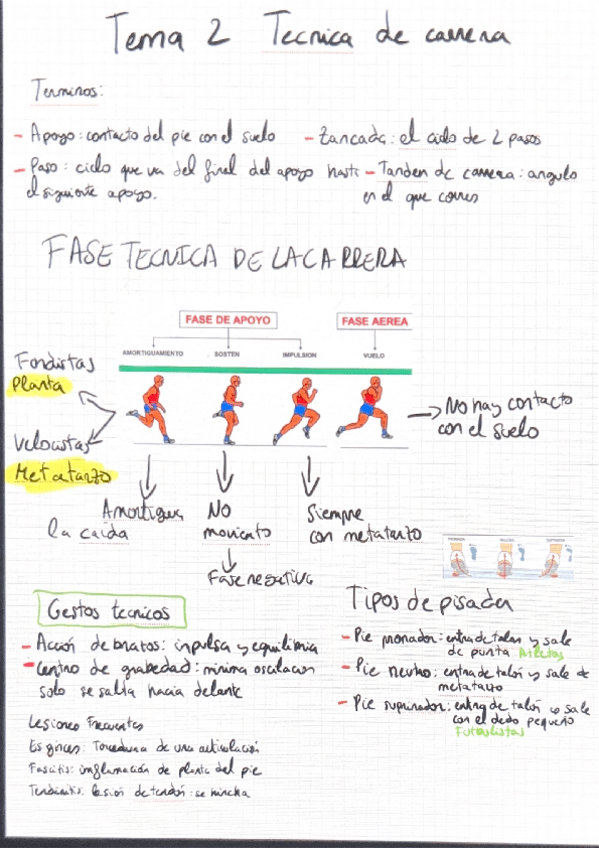 Tema 2 Tecnica de carrera
Terminos:
- Apoyo: contacto del pie con el suelo
- Zancada: el ciclo de 2 pasos
- Paso: ciclo que va del final del apoyo hasta
el siguiente apoyo.
- Tanden de carrera: angulo
en el que corres
FASE TECNICA DE LA CARRERA
FASE DE APOYO
FASE AEREA
AMORTIGUAMIENTO
SOSTEN
IMPULSION
VUELO
Fondistas
Planta
Velocistas
Metatarzo
No hay contacto
con el suelo
Amortigua
la caida
No
moviento
Fase negativa
Siempre
con metatarzo
Gestos tecnicos
- Acción de bratos: inpulsa y equilibria
- Centro de grabedad: minima oscilacion
solo se salta hacia delante
Tipos de pisada
- Pie pronador: entra de talon y sale
de punta Atletas
- Pie neutro: entra de talón y sale de
metatarzo
- Pie supinador: entra de talón y sale
con el dedo pequeño
Futbolistas
Lesiones frecuentes
Esginces: Torcedura de una articulación
Fascitis: inflamación de planta del pie
Tendinitis: lesión de tendón: se hincha